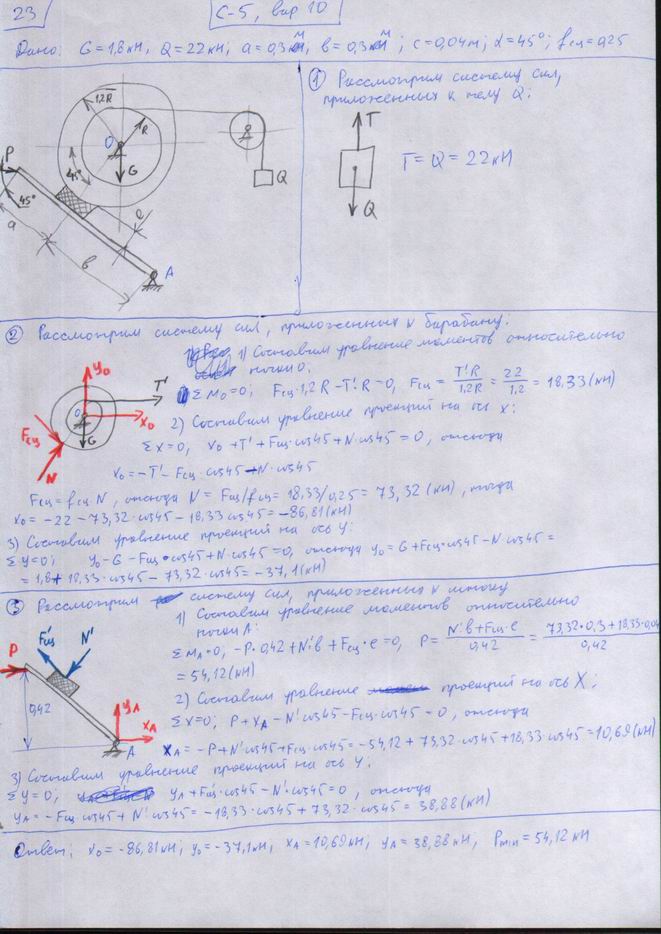 23
С-5, вар 10
Дано: G = 1,8 кН, Q = 22 кН; a = 0,3 м, в = 0,3 м; c = 0,04 м; α = 45°; fсц = 0,25
1,2R
R
O
G
P
45°
45°
a
в
e
A
Q
① Рассмотрим систему сил,
приложенных к телу Q:
T
Q
T = Q = 22 кН
② Рассмотрим систему сил, приложенных к барабану:
1) Составим уравнение моментов относительно
точки O:
ΣMo=0; Fсц·1,2R - T'·R = 0, Fсц = T'R/1,2R = 22/1,2 = 18,33 (кН)
Yo
T'
O
Xo
G
Fсц
N
2) Составим уравнение проекций на ось X:
ΣX=0, Xo + T' + Fсц·cos45 + N·cos45 = 0, откуда
Xo = -T' - Fсц·cos45 - N·cos45
Fсц = fсц·N, откуда N = Fсц/fсц = 18,33/0,25 = 73,32 (кН), тогда
Xo = -22 - 73,32·cos45 - 18,33·cos45 = -86,81 (кН)
3) Составим уравнение проекций на ось Y:
ΣY=0; Yo - G - Fсц·cos45 + N·cos45 = 0, откуда Yo = G + Fсц·cos45 - N·cos45 =
= 1,8 + 18,33·cos45 - 73,32·cos45 = -37,1 (кН)
③ Рассмотрим систему сил, приложенных к штоку
1) Составим уравнение моментов относительно
точки A:
ΣMA=0, -P·0,42 + N'·в + Fсц·e = 0, P = N'·в + Fсц·e/0,42 = 73,32·0,3 + 18,33·0,04/0,42
= 54,12 (кН)
P
F'сц
N'
0,42
YA
XA
A
2) Составим уравнение проекций на ось X:
ΣX=0; P + XA - N'cos45 - Fсц·cos45 = 0, откуда
XA = -P + N'cos45 + Fсц·cos45 = -54,12 + 73,32·cos45 + 18,33·cos45 = 10,69 (кН)
3) Составим уравнение проекций на ось Y:
ΣY=0; YA + F'сц·cos45 - N'·cos45 = 0, откуда
YA = -Fсц·cos45 + N'cos45 = -18,33·cos45 + 73,32·cos45 = 38,88 (кН)
Ответ: Xo = -86,81 кН, Yo = -37,1 кН, XA = 10,69 кН, YA = 38,88 кН, Pmin = 54,12 кН